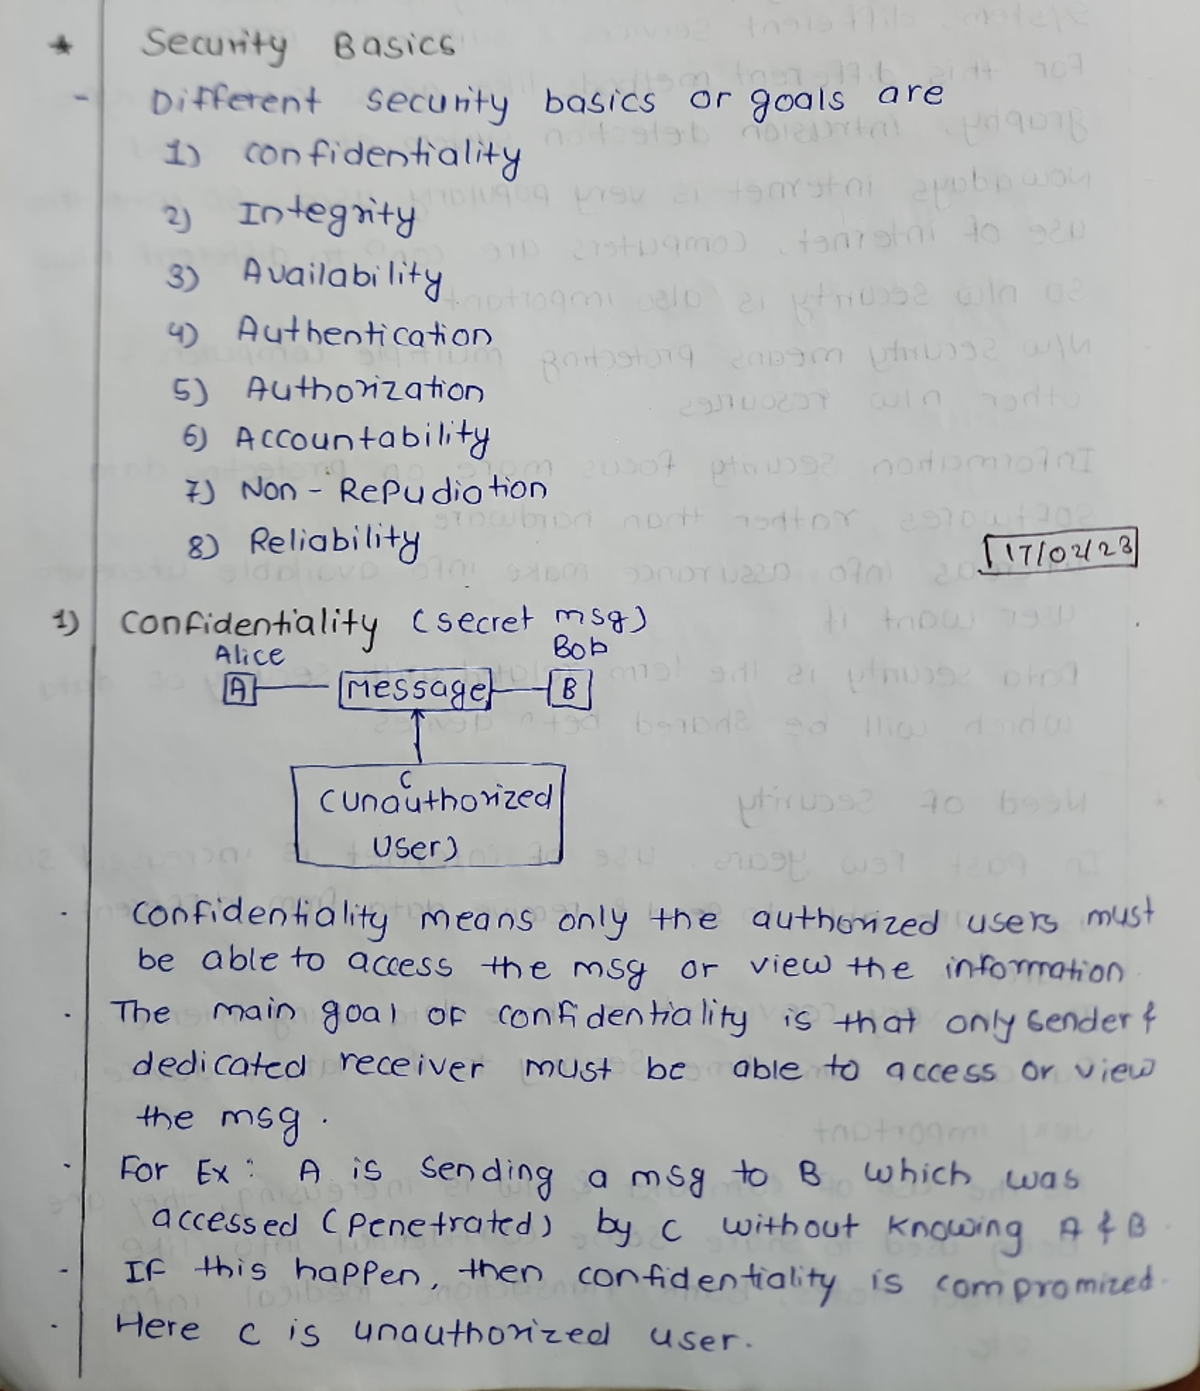 * Security Basics
- Different security basics or goals are
1) confidentiality
2) Integrity
3) Availability
4) Authentication
5) Authorization
6) Accountability
7) Non - Repudiation
8) Reliability
17/02/23
1) Confidentiality (secret msg)
Alice Bob
A Message B
C
(Unauthorized
User)
. Confidentiality means only the authorized users must
be able to access the msg or view the information
. The main goal of confidentiality is that only sender &
dedicated receiver must be able to access or view
the msg.
. For Ex: A is sending a msg to B which was
accessed (penetrated) by C without knowing A & B
- If this happen, then confidentiality is compromized.
. Here C is unauthorized user.